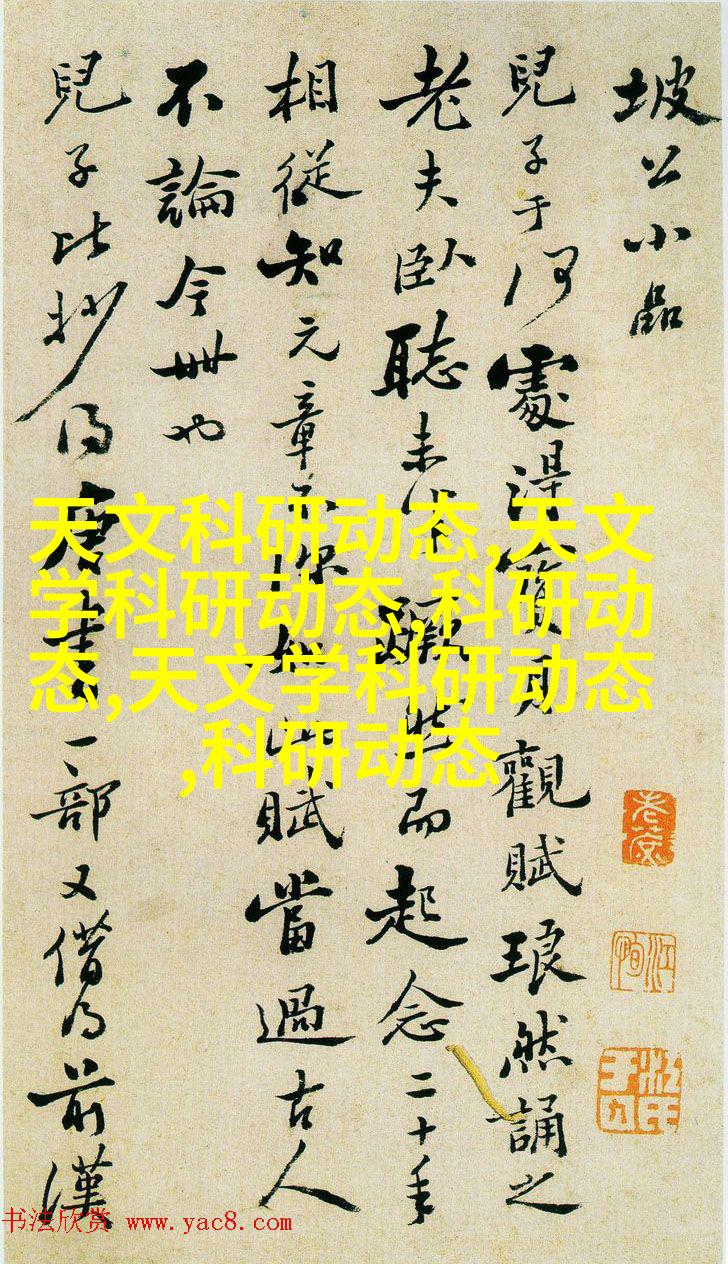 坡公小品
兒子于何處得寶月觀賦琅然誦之
老夫臥聽未半躍然而起念二十年
相從知元章不深如此賦當過古人
不論今世也
兒子比抄得唐書一部又借得前漢
天文科研动态,天文
学科研动态,科研动
态,天文学科研动态
,科研动态
老夔
书法欣赏 www.yac8.com